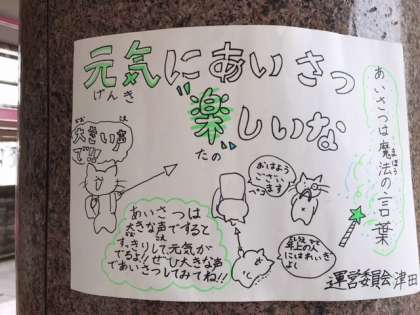 元気にあいさつ
げんき
楽しいな
たの
あいさつは魔法の言葉
まほう
大きい声
で!!
おはよう
ござい
ます
あいさつは
大きな声ですると
すっきりして元気が
でるよ!!ぜひ大きな声
であいさつしてみてね!!
運営委員会 津田